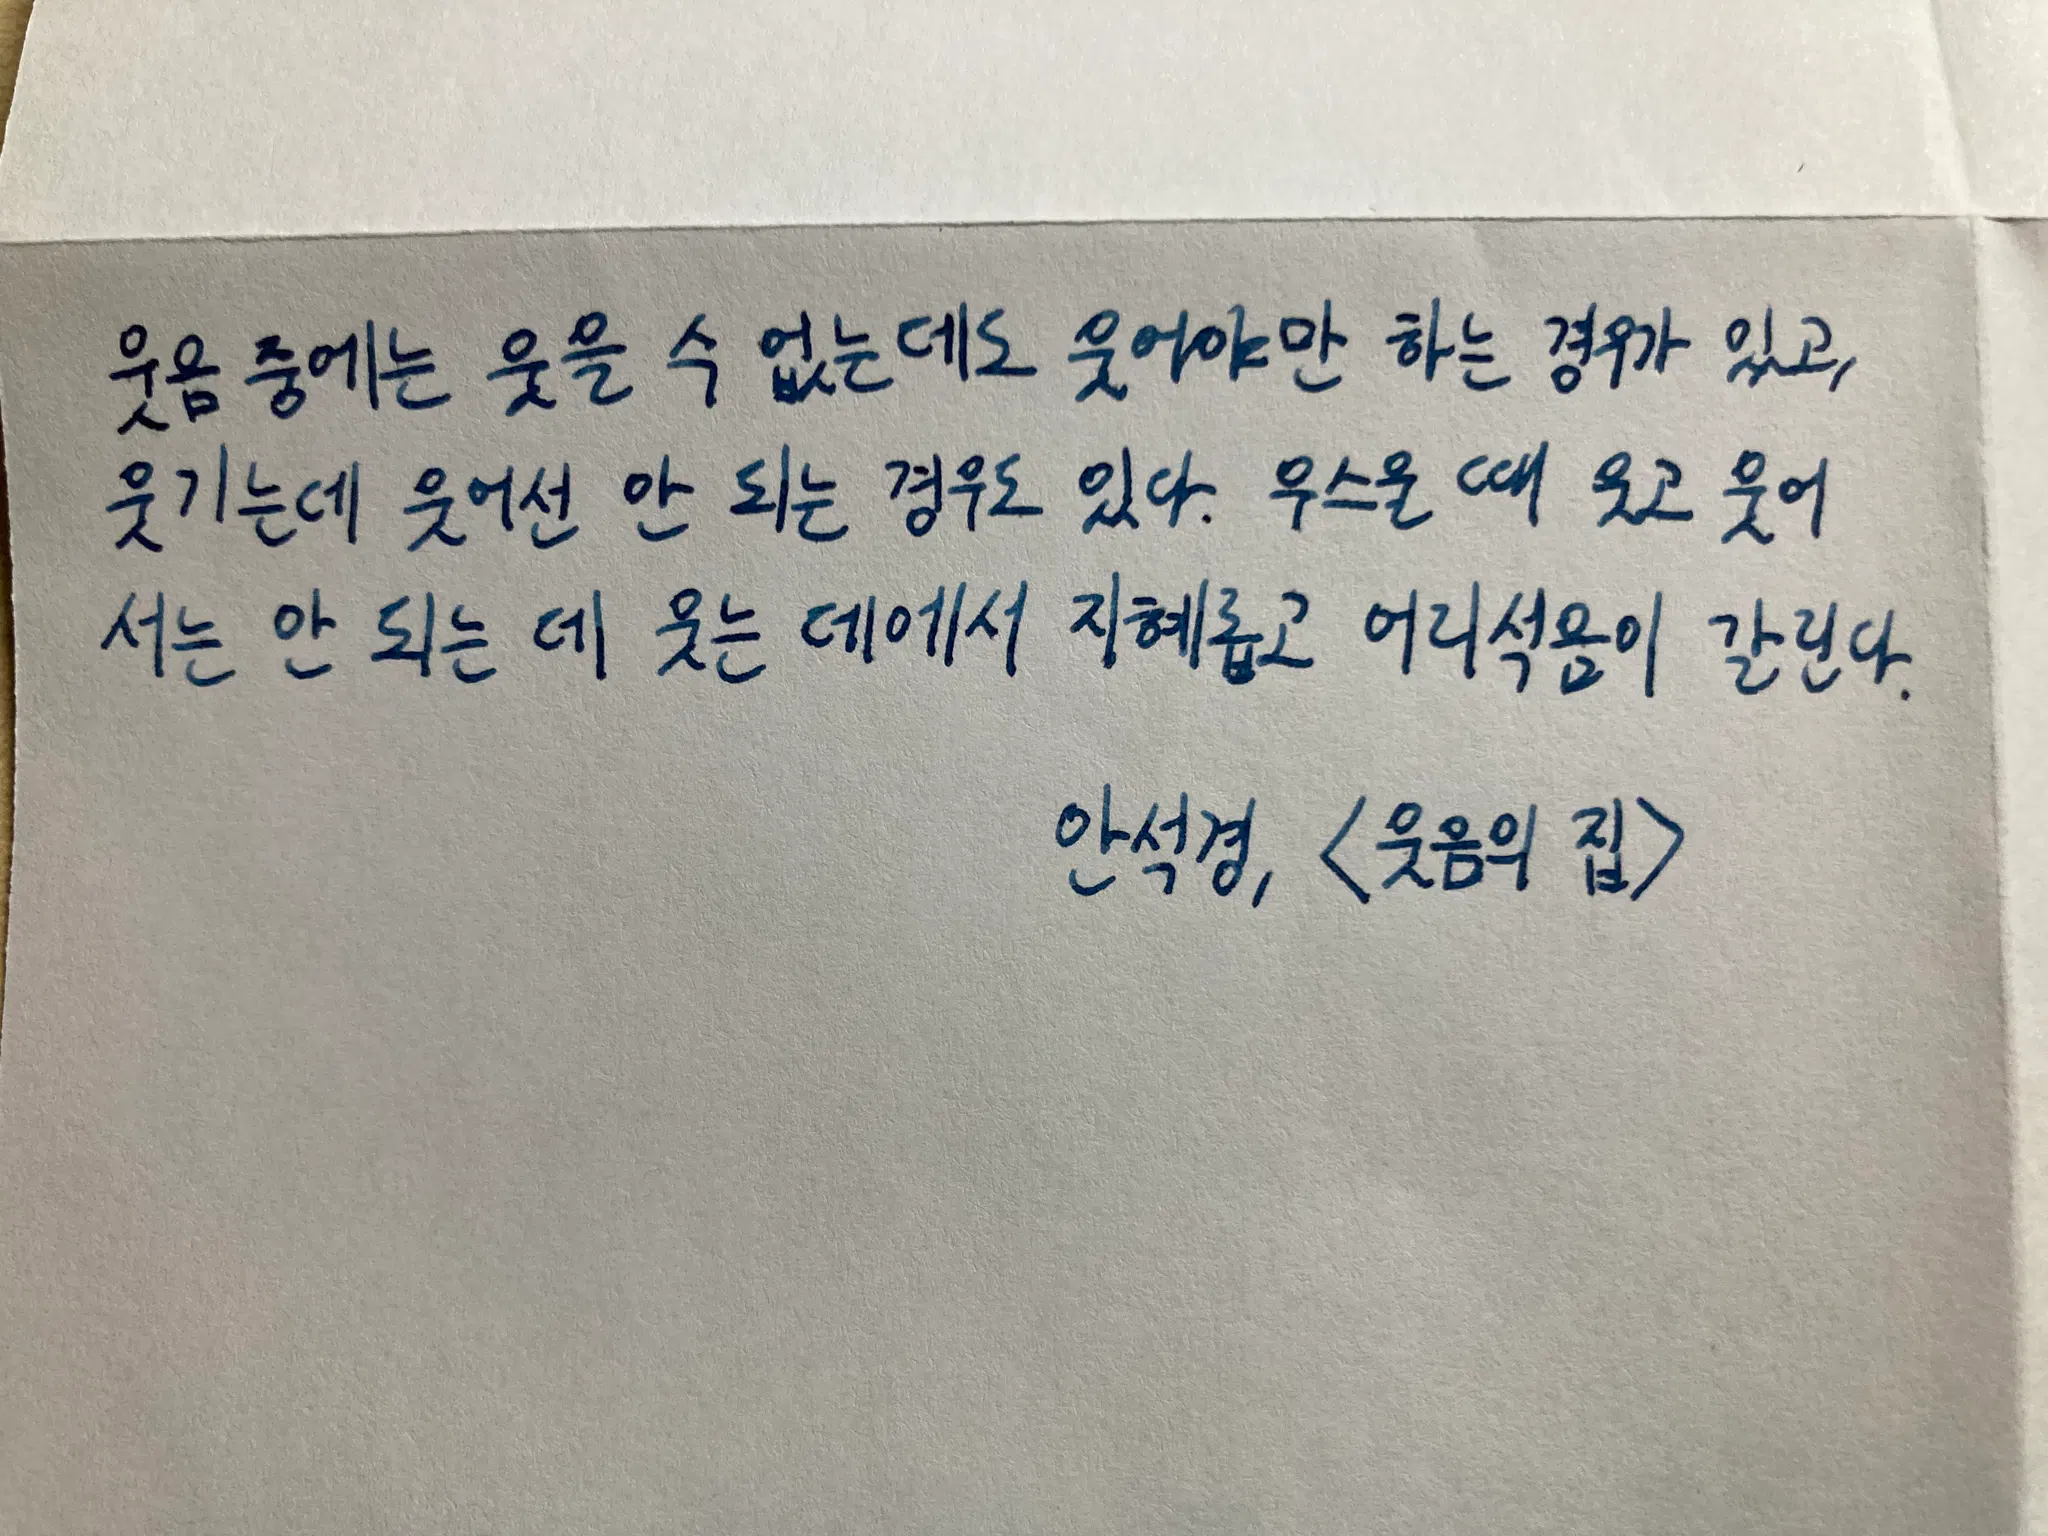 웃음 중에는 웃을 수 없는데도 웃어야만 하는 경우가 있고,
웃기는데 웃어선 안 되는 경우도 있다. 우스울 때 웃고 웃어
서는 안 되는 데 웃는 데에서 지혜롭고 어리석음이 갈린다.
안석경, <웃음의 집>